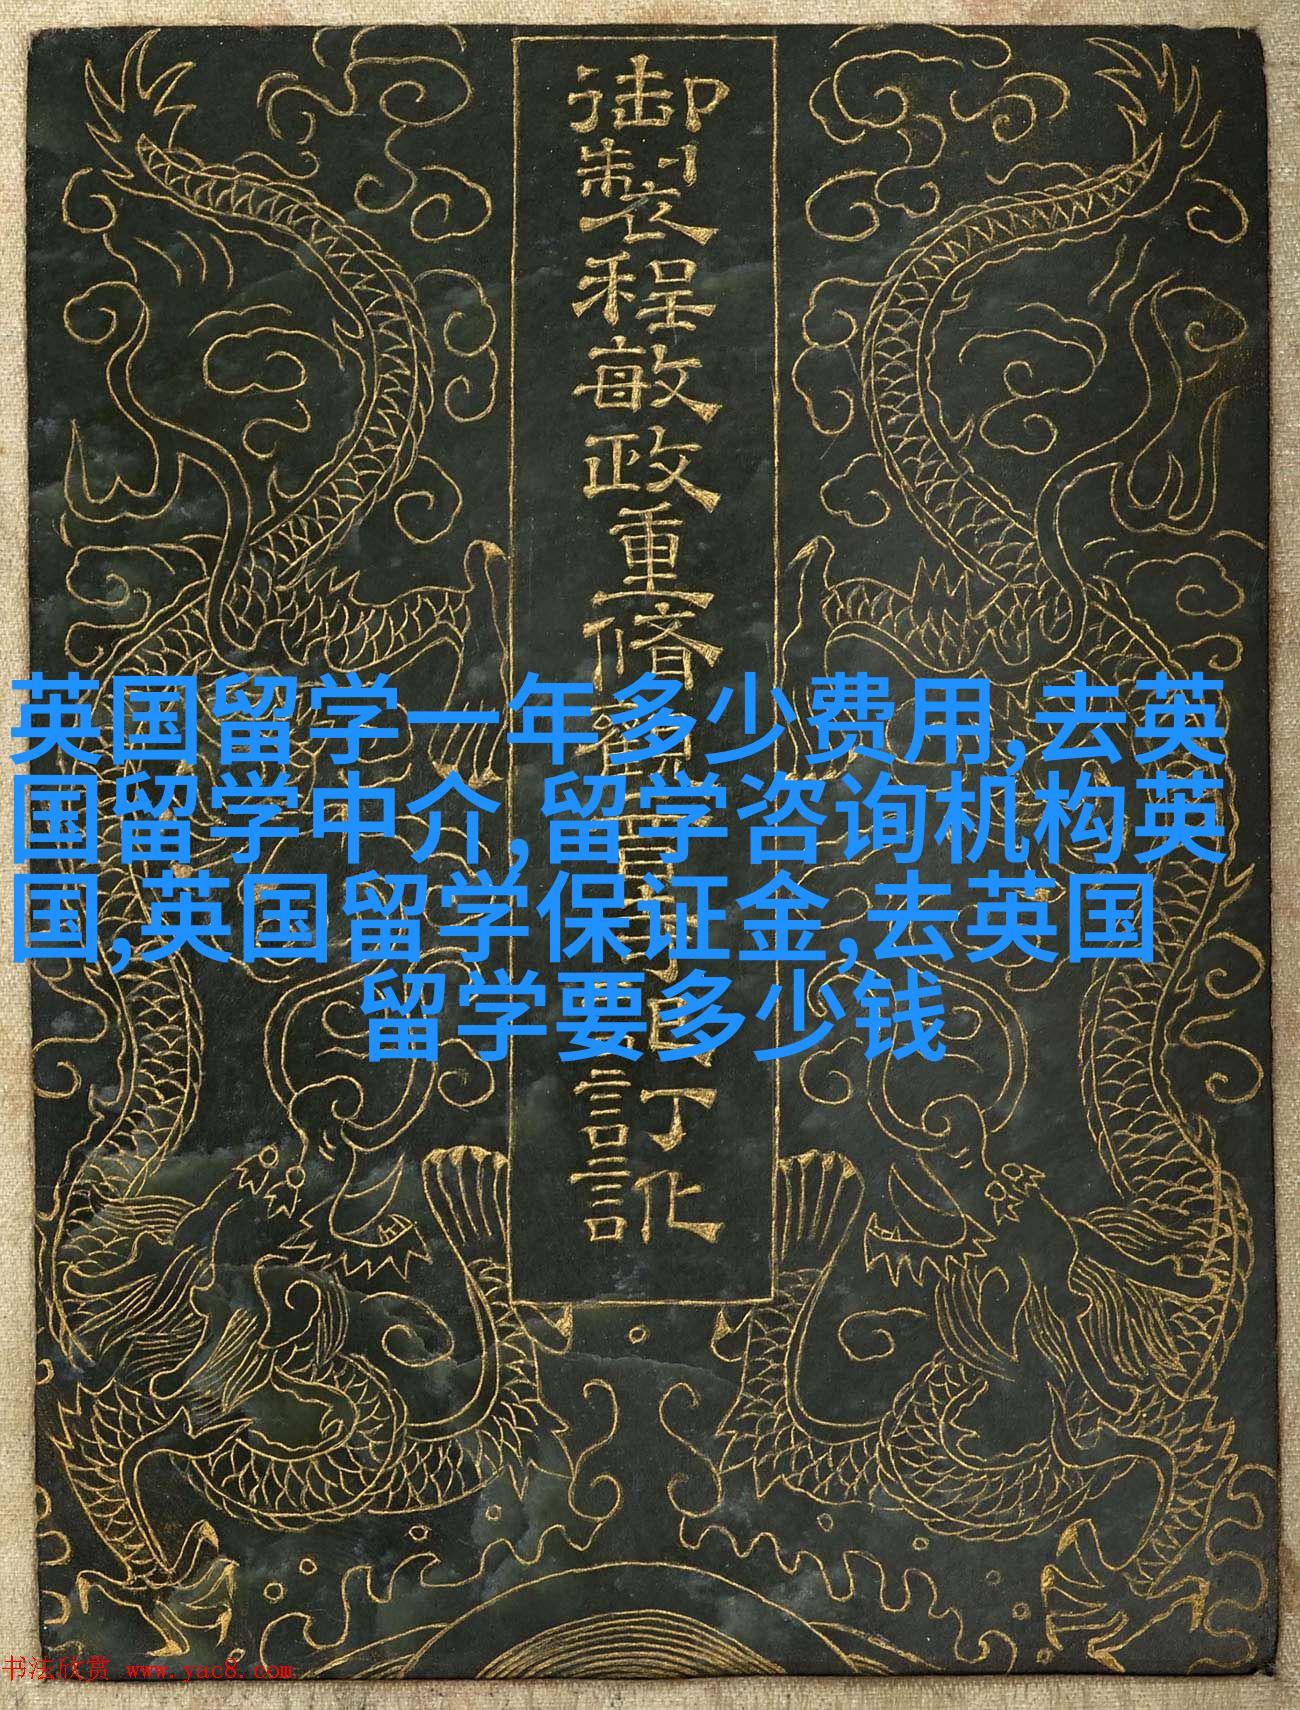 御製程敏政重脩訂訛
英国留学一年多少费用,去英
国留学中介,留学咨询机构英
国,英国留学保证金,去英国
留学要多少钱
书法欣赏 www.yac8.com